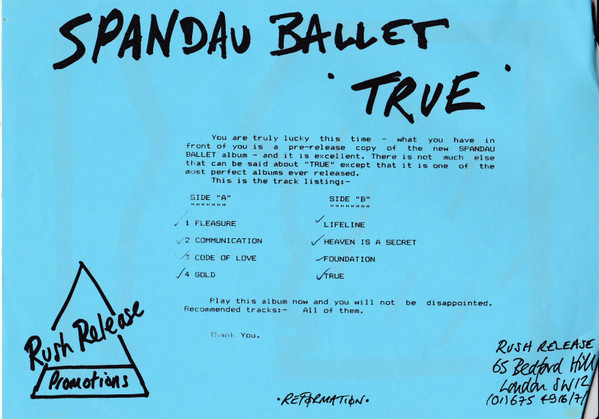 SPANDAU BALLET
'TRUE'
You are truly lucky this time - what you have in
front of you is a pre-release copy of the new SPANDAU
BALLET album - and it is excellent. There is not much else
that can be said about "TRUE" except that it is one of the
most perfect albums ever released.
This is the track listing:-
SIDE "A" SIDE "B"
1 PLEASURE LIFELINE
2 COMMUNICATION HEAVEN IS A SECRET
3 CODE OF LOVE FOUNDATION
4 GOLD TRUE
Play this album now and you will not be disappointed.
Recommended tracks:- All of them.
Thank You.
Rush Release
Promotions
·REFORMATION·
RUSH RELEASE
65 Bedford Hill
London SW12
(01) 675 4916/7/